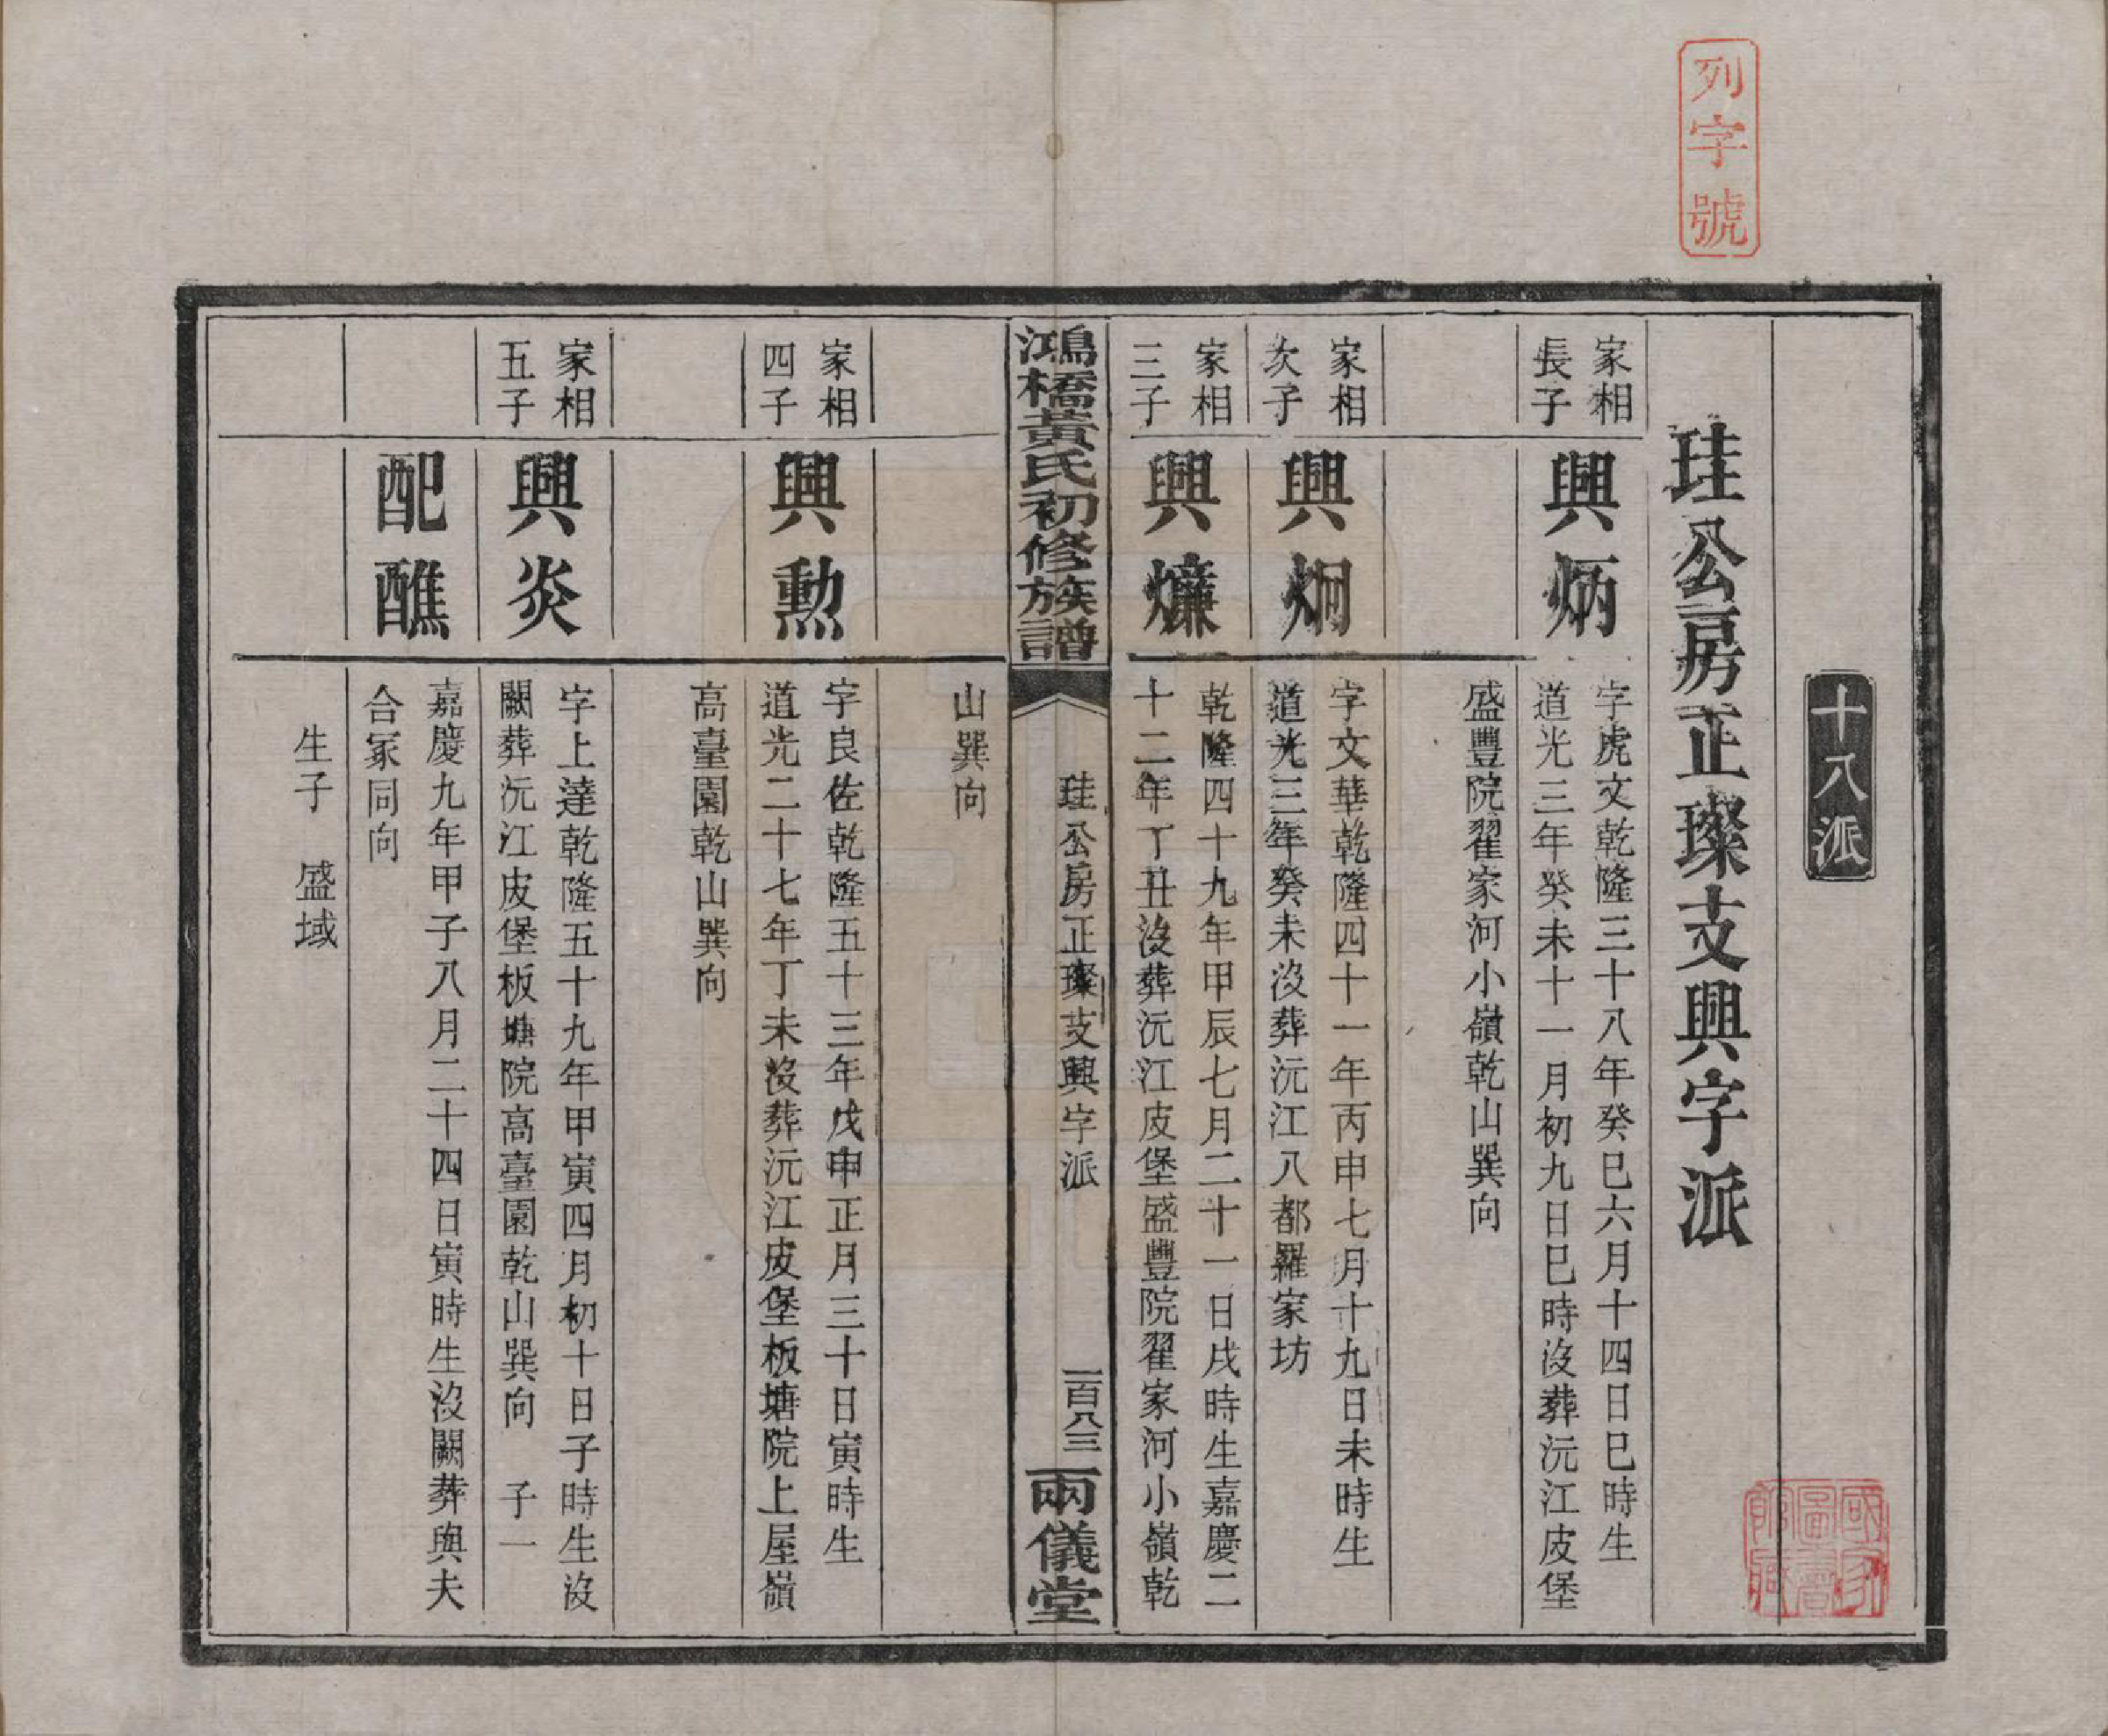 列字號
十八派
珪公房正璨支興字派
家相
長子
興炳
字虎文乾隆三十八年癸巳六月十四日巳時生
道光三年癸未十一月初九日巳時沒葬沅江皮堡
盛豐院翟家河小嶺乾山巽向
家相
次子
興炯
字文華乾隆四十一年丙申七月十九日未時生
道光三年癸未沒葬沅江八都羅家坊
家相
三子
興爌
乾隆四十九年甲辰七月二十一日戌時生嘉慶二
十二年丁丑沒葬沅江皮堡盛豐院翟家河小嶺乾
鴻橋黃氏初修族譜
珪公房正璨支興字派
一百八三
兩儀堂
山巽向
家相
四子
興勲
字良佐乾隆五十三年戊申正月三十日寅時生
道光二十七年丁未沒葬沅江皮堡板塘院上屋嶺
高臺園乾山巽向
家相
五子
興炎
字上達乾隆五十九年甲寅四月初十日子時生沒
闕葬沅江皮堡板塘院高臺園乾山巽向 子一
配醮
嘉慶九年甲子八月二十四日寅時生沒闕葬與夫
合冢同向
生子 盛域
國家
圖書
館藏